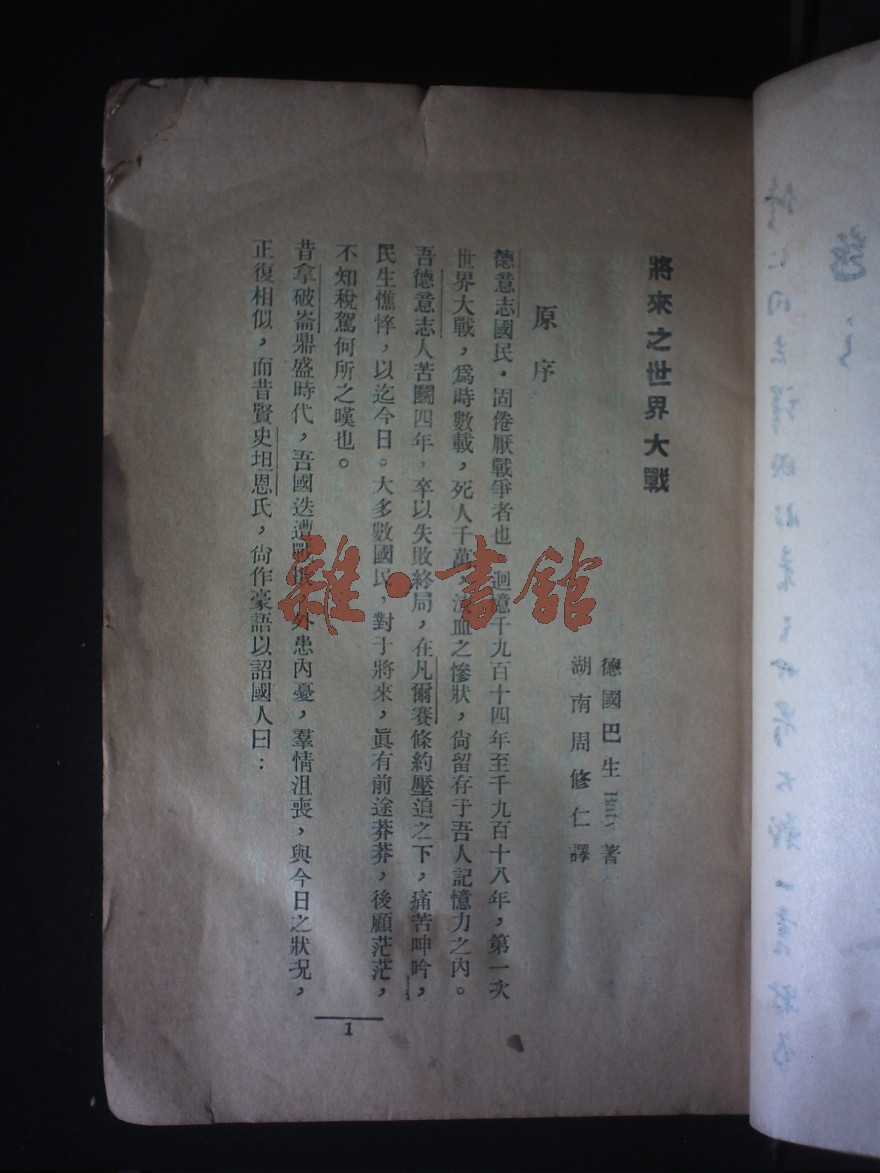 將來之世界大戰
德國巴生 著
湖南周修仁譯
原序
德意志國民，固倦厭戰爭者也 迴憶千九百十四年至千九百十八年，第一次
世界大戰，爲時數載，死人千萬，流血之慘狀，尙留存于吾人記憶力之內。
吾德意志人苦鬭四年，卒以失敗終局，在凡爾賽條約壓迫之下，痛苦呻吟，
民生憔悴，以迄今日。大多數國民，對于將來，眞有前途莽莽，後顧茫茫，
不知稅駕何所之嘆也。
昔拿破崙鼎盛時代，吾國迭遭戰 外患內憂，羣情沮喪，與今日之狀況，
正復相似，而昔賢史坦恩氏，尙作豪語以詔國人曰：
1
雜·書館